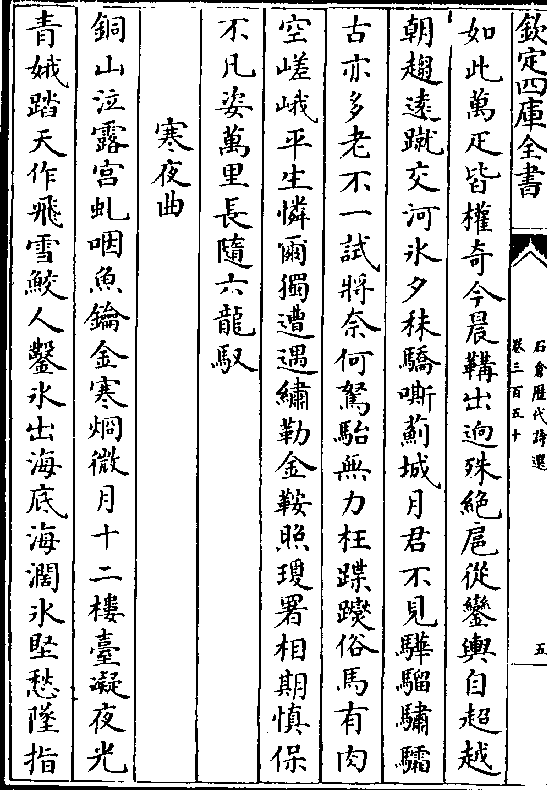 欽定四庫全書
石倉歷代詩選
卷三百五十
五
如此萬疋皆權奇今晨鞲出逈殊絶扈從鑾輿自超越
朝趨逺蹴交河氷夕秣驕嘶薊城月君不見驊騮驌驦
古亦多老不一試將奈何駑駘無力枉蹀躞俗馬有肉
空嵯峨平生憐爾獨遭遇繡勒金鞍照瓊署相期慎保
不凡姿萬里長隨六龍馭
寒夜曲
銅山泣露宫虬咽魚鑰金寒烱微月十二樓臺凝夜光
青娥踏天作飛雪鮫人鑿氷出海底海濶氷堅愁墮指